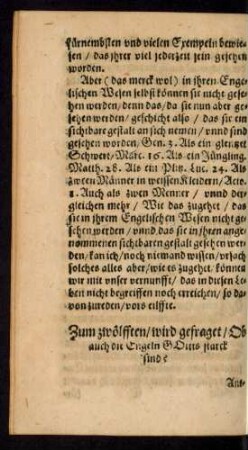 fürnembsten und vielen Exempeln bewie-
sen / das ihrer viel jederzeit sein gesehen
worden.
Aber (das merck wol) in ihren Enge-
lischen Wesen selbst können sie nicht gese-
hen werden / denn das / da sie nun aber ge-
sehen werden / geschicht also / das sie ein
sichtbare gestalt an sich nemen / vnnd sind
gesehen worden / Gen. 3. Als ein glentzet
Schwert / Marc. 16. Als ein Jüngling.
Matth. 28. Als ein Plitz. Luc. 24. Als
zween Männer in weissen Kleidern / Actor.
1. Auch als zwen Menner / vnnd der-
gleichen mehr / Wie das zugehet / das
sie in jhrem Engelischen Wesen nicht ge-
sehen werden / vnnd das sie in jhren ange-
nommenen sichtbaren gestalt gesehen wer-
den / kan ich / noch niemand wissen / vrsach
solches alles aber / wie es zugehet, können
wir mit unser vernunfft / das in diesen Le-
ben nicht begreiffen noch erreichen / so da-
von zureden / vors eilffte.
Zum zwölfften / wird gefraget / Ob
auch die Engeln GOttes starck
sind?
Ant-